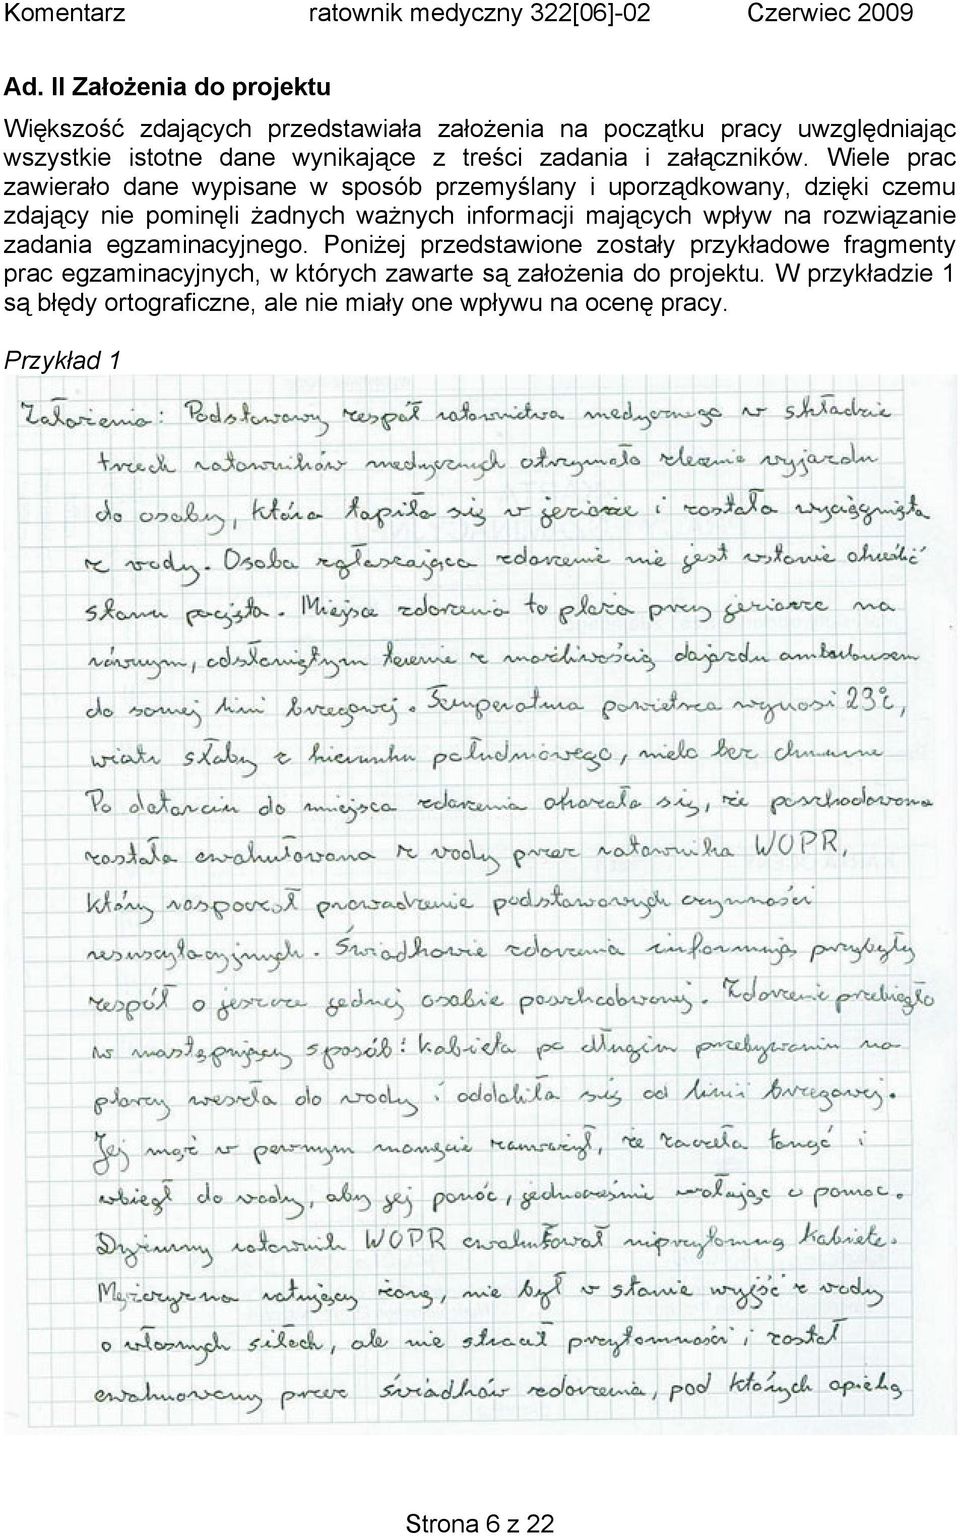 Komentarz ratownik medyczny 322[06]-02 Czerwiec 2009
Ad. II Założenia do projektu
Większość zdających przedstawiała założenia na początku pracy uwzględniając
wszystkie istotne dane wynikające z treści zadania i załączników. Wiele prac
zawierało dane wypisane w sposób przemyślany i uporządkowany, dzięki czemu
zdający nie pominęli żadnych ważnych informacji mających wpływ na rozwiązanie
zadania egzaminacyjnego. Poniżej przedstawione zostały przykładowe fragmenty
prac egzaminacyjnych, w których zawarte są założenia do projektu. W przykładzie 1
są błędy ortograficzne, ale nie miały one wpływu na ocenę pracy.
Przykład 1
Założenia: Podstawowy zespół ratownictwa medycznego w składzie
trzech ratowników medycznych otrzymało zlecenie wyjazdu
do osoby, która topiła się w jeziorze i została wyciągnięta
z wody. Osoba zgłaszająca zdarzenie nie jest wstanie określić
stanu pacjęta. Miejsce zdarzenia to plaża przy jeziorze na
równym, odsłoniętym terenie z możliwością dojazdu ambulansem
do samej lini brzegowej. Temperatura powietrza wynosi 23°C,
wiatr słaby z kierunku południowego, niebo bez chmurne
Po dotarciu do miejsca zdarzenia okazało się, że poszkodowana
została ewakuowana z wody przez ratownika WOPR,
który rospoczoł prowadzenie podstawowych czynności
resuscytacyjnych. Świadkowie zdarzenia informują przybyły
zespół o jeszcze jednej osobie poszkodowanej. Zdarzenie przebiegło
w następujący sposób: kobieta po długim przebywaniu na
plarzy weszła do wody i oddaliła się od linii brzegowej.
Jej mąż w pewnym momęcie zauważył, że zaczeła tonąć i
wbiegł do wody, aby jej pomóc, jednocześnie wołając o pomoc.
Dyżurny ratownik WOPR ewakuował nieprzytomną kobiete.
Mężczyzna ratujący żonę, nie był w stanie wyjść z wody
o własnych siłach, ale nie stracił przytomności i został
ewakuowany przez świadków zdarzenia, pod których opieką
Strona 6 z 22